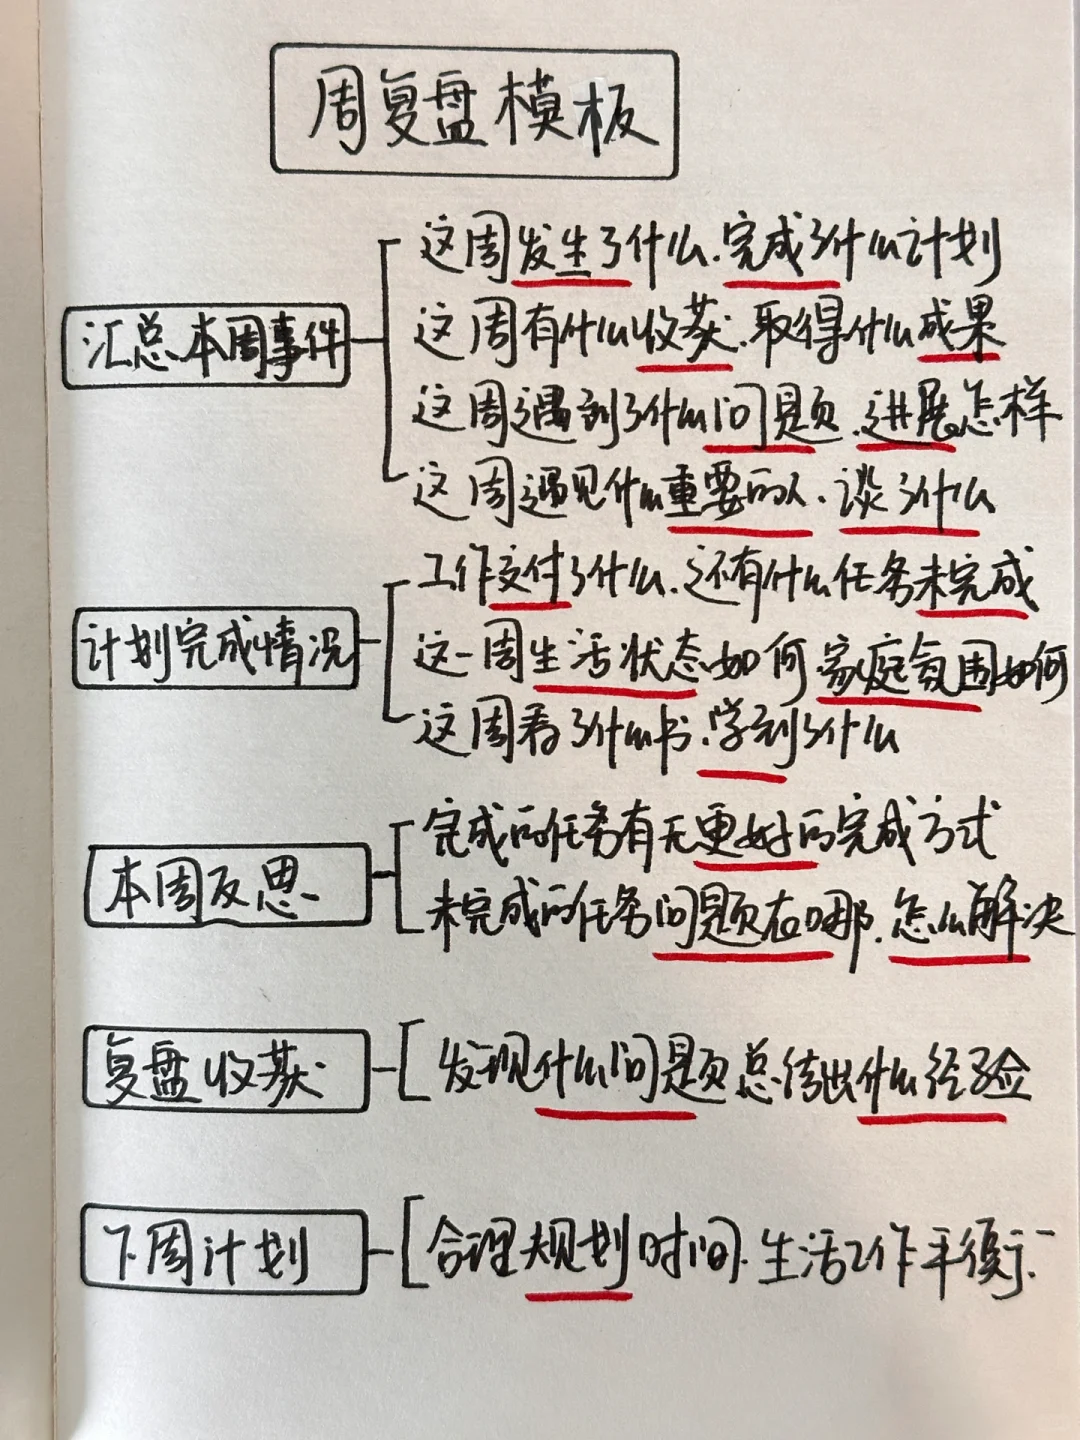 周复盘模板
汇总本周事件
这周发生了什么.完成了什么计划
这周有什么收获.取得什么成果
这周遇到了什么问题.进展怎样
这周遇见什么重要的人.谈了什么
计划完成情况
工作交付了什么.还有什么任务未完成
这一周生活状态如何 家庭氛围如何
这周看了什么书.学到了什么
本周反思
完成的任务有无更好的完成方式
未完成的任务问题在哪.怎么解决
复盘收获
发现什么问题总结出什么经验
下周计划
合理规划时间.生活工作平衡